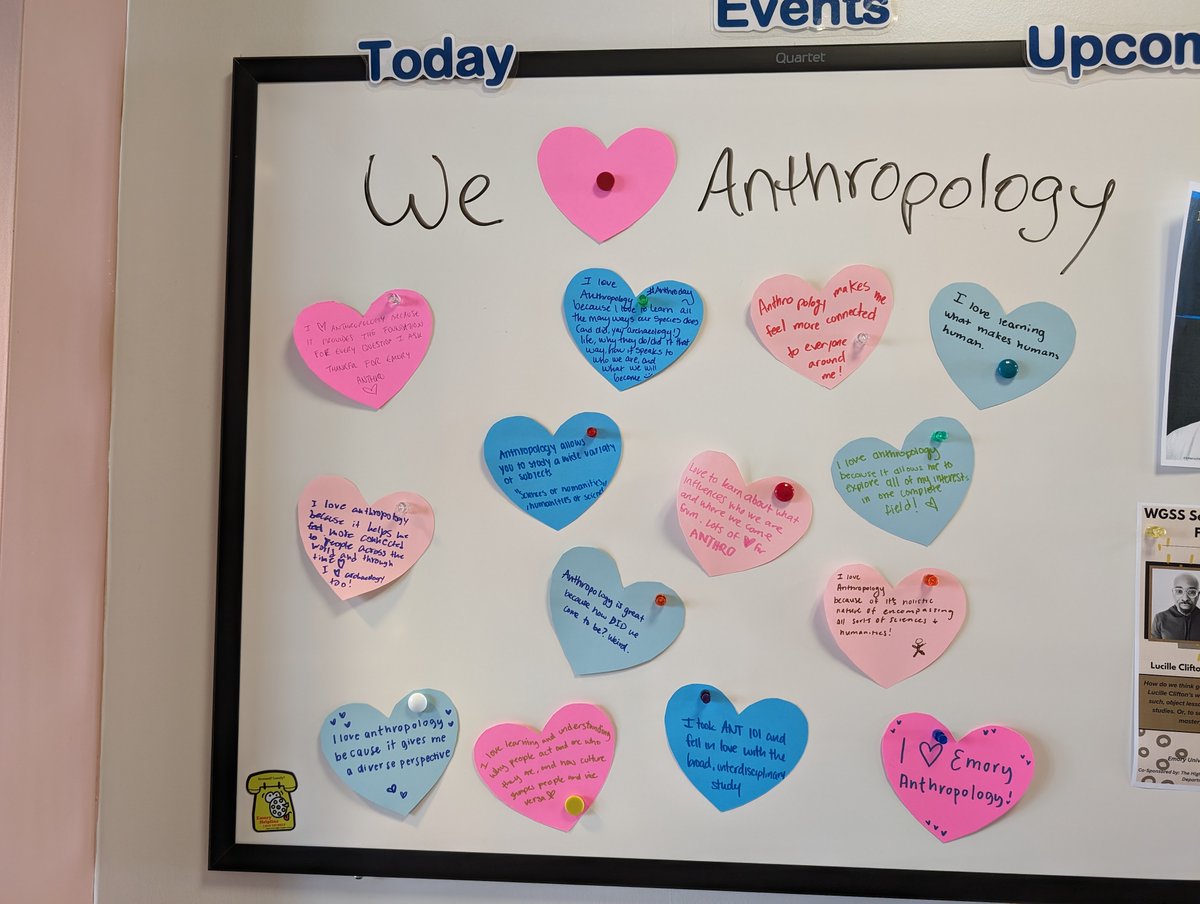 Events
Today
Quartet
Upcom
We Anthropology
I ♡ ANTHROPOLOGY BECAUSE
IT PROVIDES THE FOUNDATION
FOR EVERY QUESTION I ASK
THANKS FOR EMORY
ANTHRO
♡
I love #Anthroday
Anthropology
because I love to learn all
the many ways our species does
(and did, yay archaeology!)
life, why they do/did it that
way, how it speaks to
who we are, and
what we will
become
Anthropology makes me
feel more connected
to everyone
around
me!
I love learning
what makes humans
human.
Anthropology allows
you to study a wide variaty
of subjects
"Sciences of humanities,
humanities of science"
Love to learn about what
influences who we are
and where we come
from. Lots of ♥ for
ANTHRO
I love anthropology
because it allows me to
explore all of my interests
in one complete
field! ♡
I love anthropology
because it helps me
feel more connected
to people across the
world and through
time
I ♡ archaeology
too!
Anthropology is great
because how DID we
come to be? Weird.
I love
Anthropology
because of it's holistic
nature of encompassing
all sorts of sciences +
humanities!
I love anthropology
because it gives me
a diverse perspective
I love learning and understanding
why people act and are who
they are, and how culture
shapes people and vice
versa
I took ANT 101 and
fell in love with the
broad, interdisciplinary
study
I ♡ Emory
Anthropology!
Emory
Helpline
WGSS
Lucille Clifton
How do we think
Lucille Clifton's
such, object
studies. Or, to
master
Emory
Co-Sponsored by: The
Depart